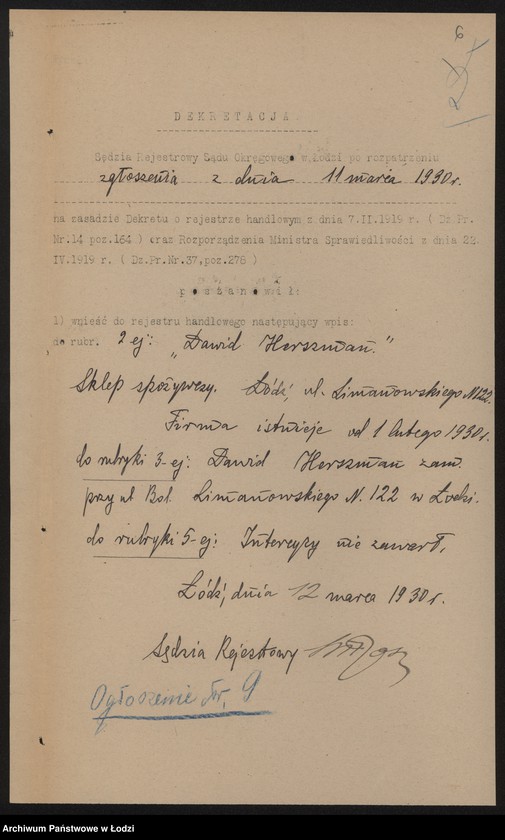 6
DEKRETACJA
Sędzia Rejestrowy Sądu Okręgowego w Łodzi po rozpatrzeniu
zgłoszenia z dnia 11 marca 1930 r.
na zasadzie Dekretu o rejestrze handlowym z dnia 7.II.1919 r. ( Dz.Pr.
Nr.14 poz.164 ) oraz Rozporządzenia Ministra Sprawiedliwości z dnia 22
IV.1919 r. ( Dz.Pr.Nr.37,poz.278 )
postanowił:
1) wnieść do rejestru handlowego następujący wpis:
do rubr. 2 ej: „Dawid Herszman."
Sklep spożywczy. Łódź, ul. Limanowskiego N 122.
Firma istnieje od 1 lutego 1930 r.
do rubryki 3-ej: Dawid Herszman zam.
przy ul Bol. Limanowskiego N. 122 w Łodzi.
do rubryki 5-ej: Intercyzy nie zawarł.
Łódź, dnia 12 marca 1930 r.
Sędzia Rejestrowy
Ogłoszenie Nr. 9
Archiwum Państwowe w Łodzi